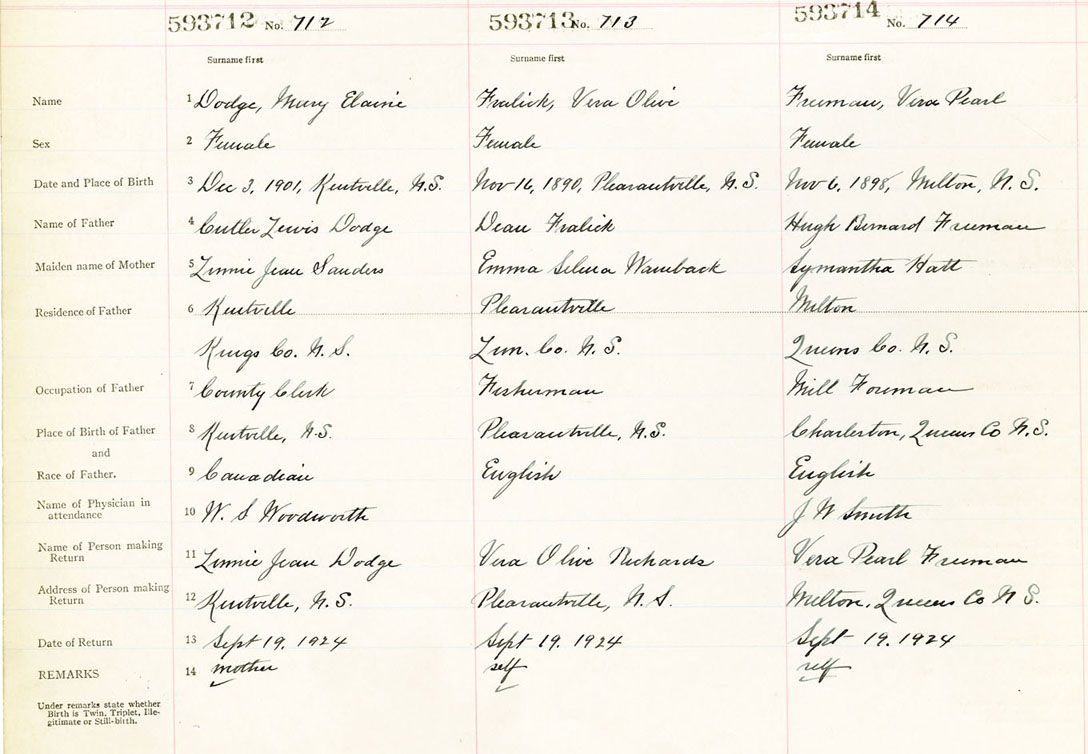 593712 No. 712 593713 No. 713 593714 No. 714
Surname first Surname first Surname first
Name 1 Dodge, Mary Elaine Fralick, Vera Olive Freeman, Vera Pearl
Sex 2 Female Female Female
Date and Place of Birth 3 Dec 3, 1901, Kentville, N.S. Nov 16, 1890, Pleasantville, N.S. Nov 6, 1898, Milton, N.S.
Name of Father 4 Cutler Lewis Dodge Dean Fralick Hugh Bernard Freeman
Maiden name of Mother 5 Linnie Jean Sanders Emma Selena Wamback Symantha Hatt
Residence of Father 6 Kentville Pleasantville Milton
Kings Co. N.S. Lun. Co. N.S. Queens Co. N.S.
Occupation of Father 7 County Clerk Fisherman Mill Foreman
Place of Birth of Father 8 Kentville, N.S. Pleasantville, N.S. Charleston, Queens Co N.S.
and
Race of Father. 9 Canadian English English
Name of Physician in
attendance 10 W. S Woodworth J W Smith
Name of Person making
Return 11 Linnie Jean Dodge Vera Olive Richards Vera Pearl Freeman
Address of Person making
Return 12 Kentville, N.S. Pleasantville, N.S. Milton, Queens Co N S.
Date of Return 13 Sept 19, 1924 Sept 19. 1924 Sept 19. 1924
REMARKS 14 mother self self
Under remarks state whether
Birth is Twin, Triplet, Ille-
gitimate or Still-birth.